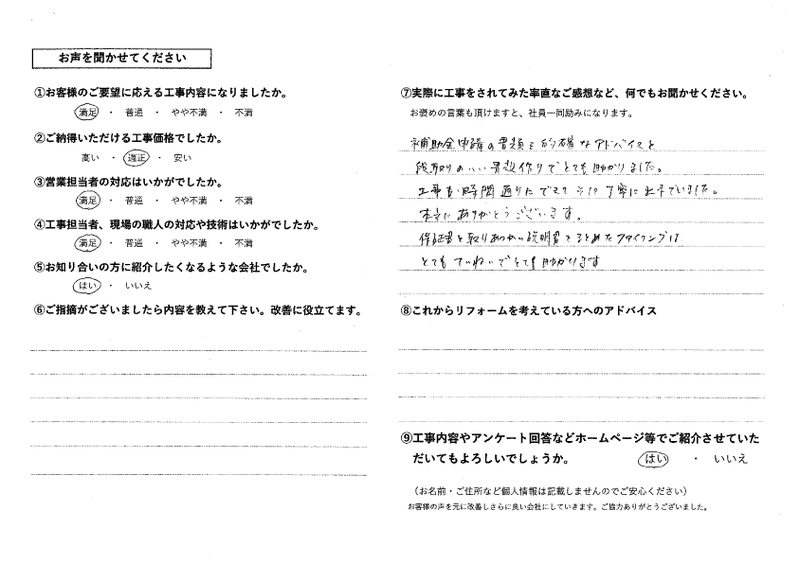 お声を聞かせてください
①お客様のご要望に応える工事内容になりましたか。
満足 ・ 普通 ・ やや不満 ・ 不満
②ご納得いただける工事価格でしたか。
高い ・ 適正 ・ 安い
③営業担当者の対応はいかがでしたか。
満足 ・ 普通 ・ やや不満 ・ 不満
④工事担当者、現場の職人の対応や技術はいかがでしたか。
満足 ・ 普通 ・ やや不満 ・ 不満
⑤お知り合いの方に紹介したくなるような会社でしたか。
はい ・ いいえ
⑥ご指摘がございましたら内容を教えて下さい。改善に役立てます。
⑦実際に工事をされてみた率直なご感想など、何でもお聞かせください。
お褒めの言葉も頂けますと、社員一同励みになります。
補助金申請の書類も的確なアドバイスと
段取りのいい書類作りでとても助かりました。
工事も時間通りに 丁寧に されていました。
本当にありがとうございます。
保証書と取りあつかい説明書をまとめたファイリングは
とてもていねいでとても助かります
⑧これからリフォームを考えている方へのアドバイス
⑨工事内容やアンケート回答などホームページ等でご紹介させていた
だいてもよろしいでしょうか。 はい ・ いいえ
（お名前・ご住所など個人情報は記載しませんのでご安心ください）
お客様の声を元に改善しさらに良い会社にしていきます。ご協力ありがとうございました。